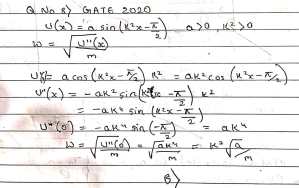 Q No 8) GATE 2020
U(x) = a sin (k²x - π/2) a>0, k²>0
ω = √(U''(x)/m)
= a cos (k²x - π/2) k² = ak² cos (k²x - π/2)
U''(x) = -ak² sin (k²x - π/2) k²
= -ak⁴ sin (k²x - π/2)
U''(0) = -ak⁴ sin (-π/2) = ak⁴
ω = √(U''(0)/m) = √(ak⁴/m) = k² √(a/m)
B)